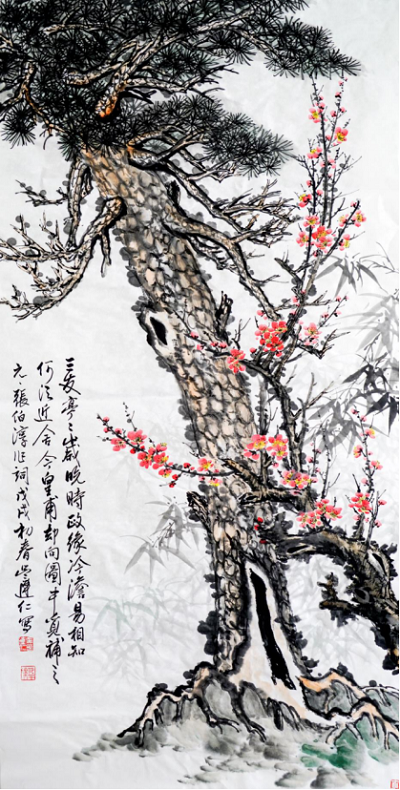 三友亭亭歲晚時政緣冷澹易相知
何須近舍令皇甫却向圖中覓補之
元·張伯淳作詞戊戌初春崇運仁寫